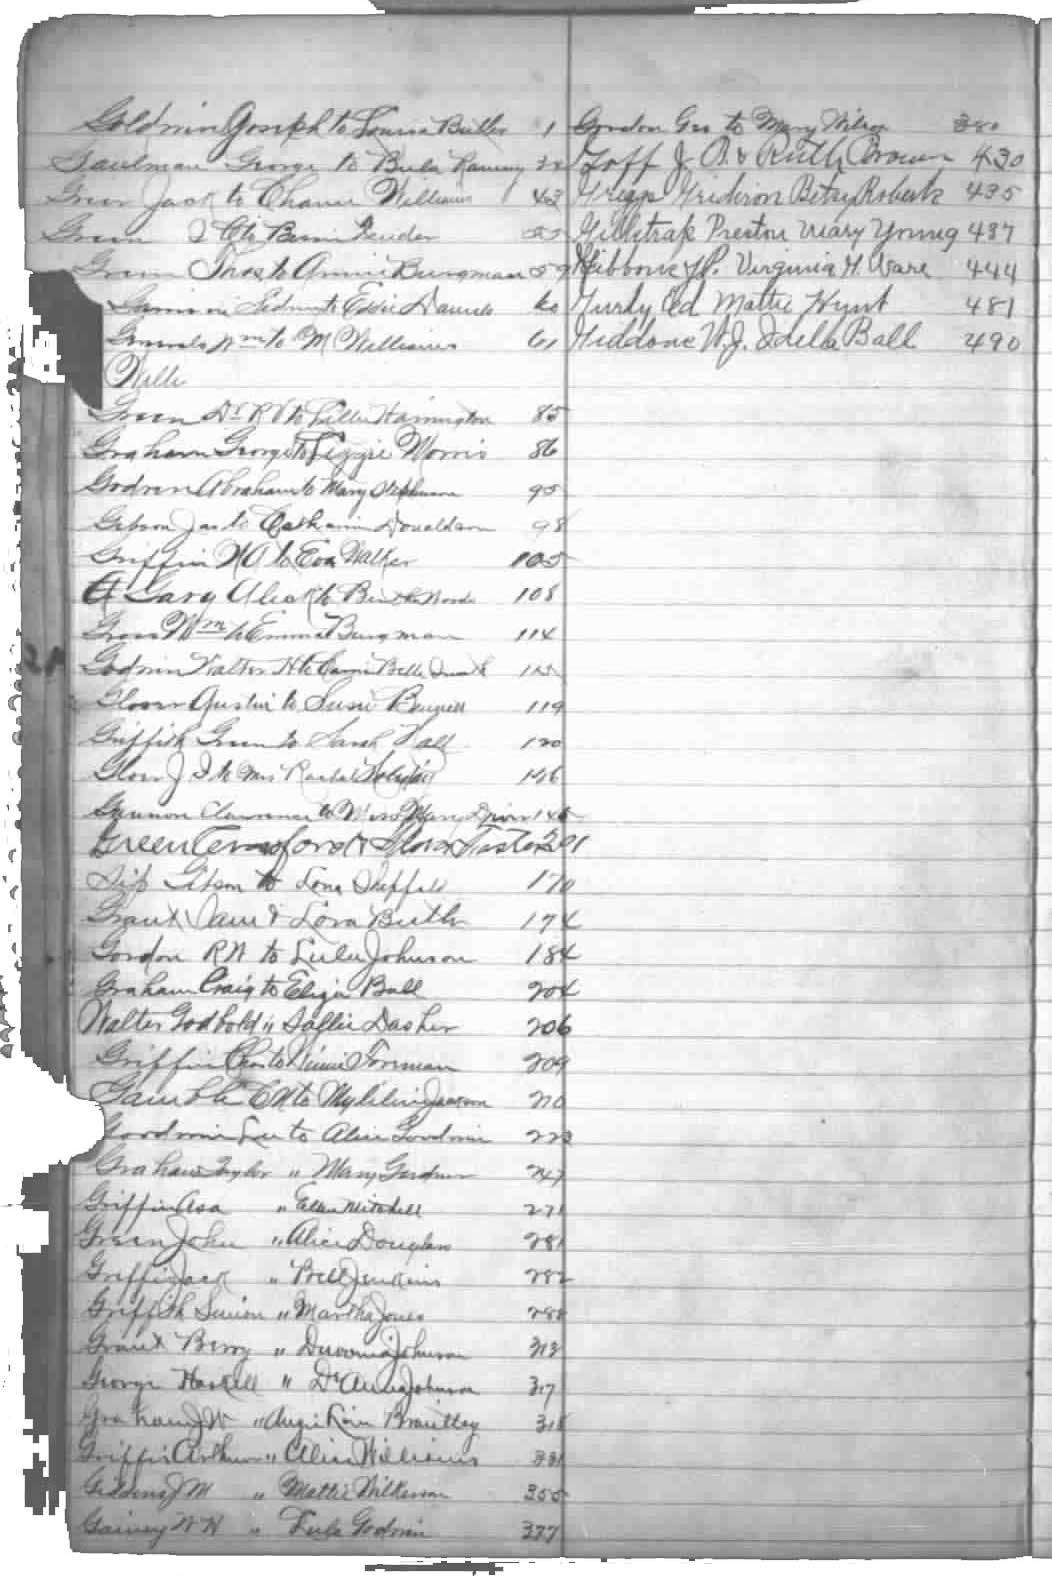 Goldwin Joseph to Louisa Butler 1
Gaulman George to Beula Ramey
Green Jack to Chanie Williams 43
Green to Kender
Green Thos to Annie Burgman 59
to Essie Daniels 60
Wm to M Williams 61
Wille
Green Dr R V to Lillie Harrington 85
Graham George to Lizzie Morris 86
Godwin Abraham to Mary Stephenson 95
Gibson Jas to Catharin Donaldson 98
Griffin W A to Eva Walker 105
Gary Aleck to 108
Gross Wm to Emma Burgman 114
Godwin Walter H to Belle Smith
Glover Austin to Susie 119
Griffith Green to Sarah Hall 120
Glover J I to Mrs Rachel
Gannon Clarence to Miss Mary
Green & Flora 201
Gip Gibson to Lona Sheffield 170
Grant Sam & Lora Butler 174
Gordon R N to Lula Johnson 184
Graham Craig to Eliza Ball 204
Walter Godbold " Sallie Dasher 206
Griffin Chas to Forman 209
Gamble C N to Jackson 210
Goodwin Lee to Alice Goodwin
Graham Taylor " Mary Gardner 247
Griffin Asa " Ellen Mitchell 271
Green John " Alice Douglass 281
Griffin Jack " Bell Jenkins 282
Griffith Simion " Martha Jones 288
Grant Berry " Johnson 313
George Haskell " Johnson 317
Graham J W " Brantley 318
Griffin Arthur " Alice Williams 331
Giddens J M " Mattie Wilkerson 355
Gainey W H " Lula Godwin 377
Gordon Geo to Mary Wilson 380
Goff J. B. & Ruth Brown 430
Griggs Betsy Roberts 435
Gillstrap Preston Mary Young 437
Gibbons J.P. Virginia H. Ware 444
Gurly Ed Mattie Hunt 481
Giddens W.J. Idella Ball 490